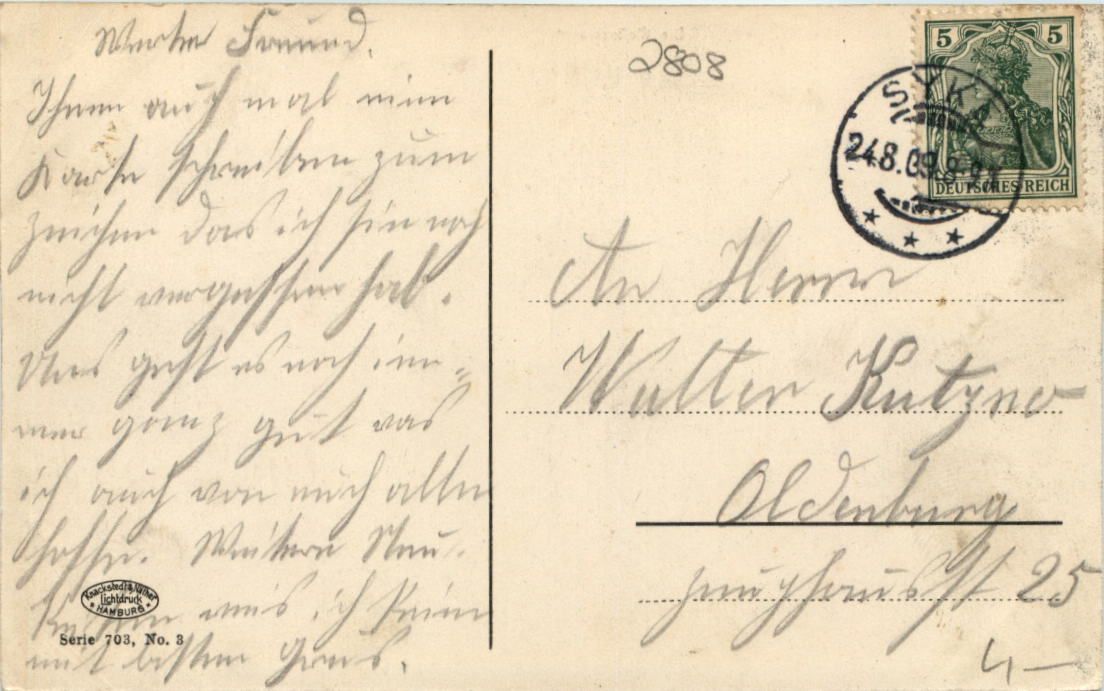 Werter Freund.
Ihnen auch mal eine
Karte schreiben zum
zeichen das ich sie noch
nicht vergessen hab.
Uns geht es noch im=
mer ganz gut was
ich auch von euch allen
hoffe. Weitere Neu-
weis ich keine
mit besten Grus.
Knackstedt & Näther
Lichtdruck
HAMBURG
Serie 703, No. 3
2808
5 5
DEUTSCHES REICH
SYKE
24.8.09.8-9V
An Herrn
Walter
Oldenburg
25
4,—